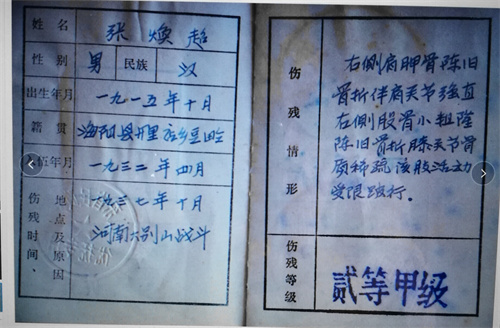 姓名 张焕超
性别 男 民族 汉
出生年月 一九一五年十月
籍贯
入伍年月 一九三二年四月
伤残时间、地点及原因
一九三七年十月
河南大别山战斗
伤残情形
右侧肩胛骨陈旧
骨折伴肩关节强直
右侧股骨小粗隆
陈旧骨折膝关节骨
质稀疏该肢活动
受限跛行.
伤残等级
贰等甲级